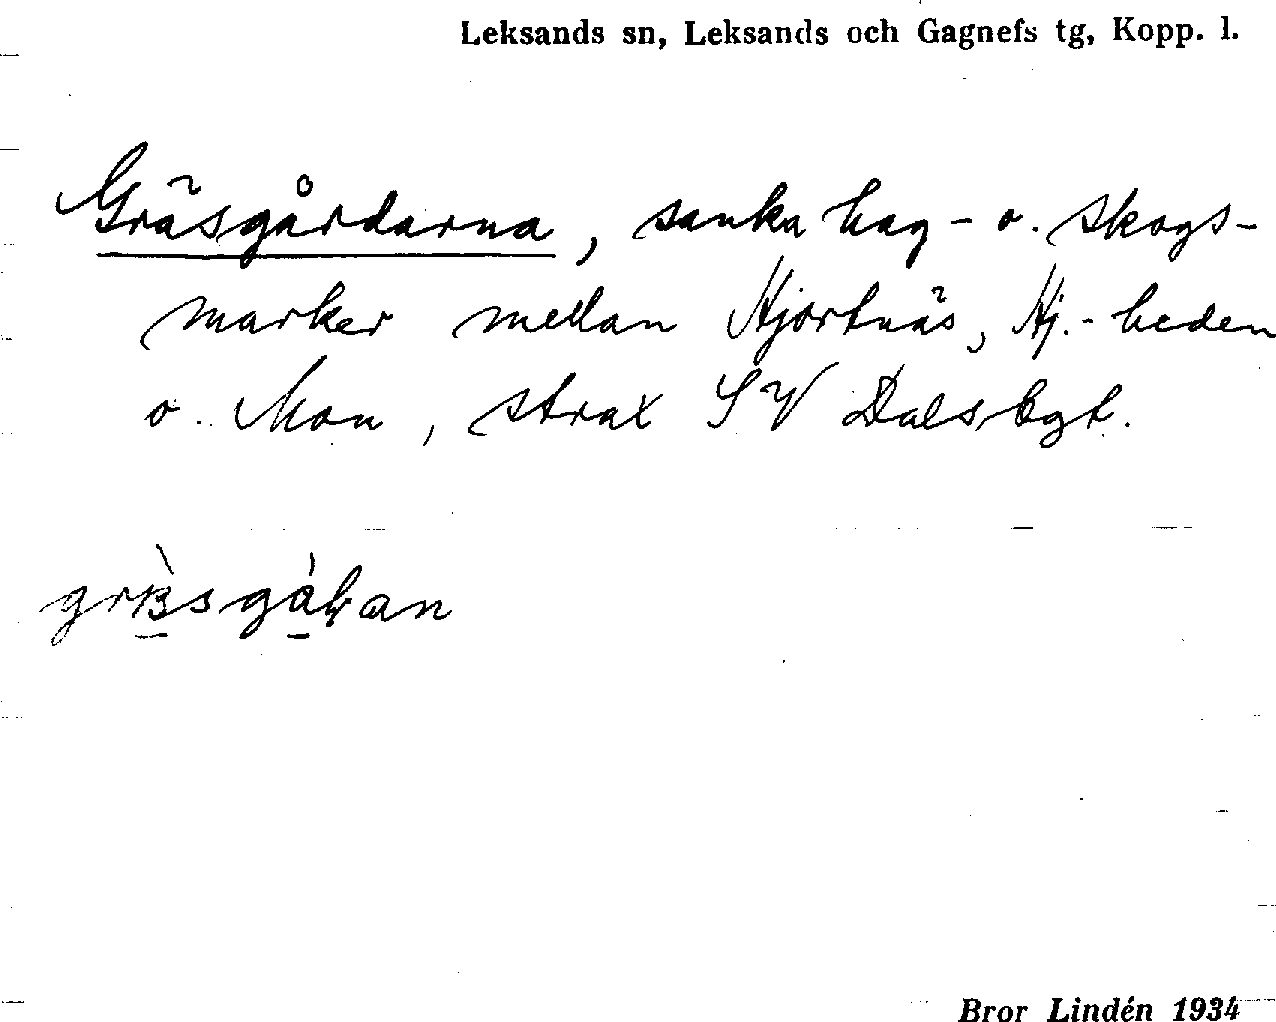 Leksands sn, Leksands och Gagnefs tg, Kopp. l.
Gräsgårdarna, sanka hag- o. skogs-
marker mellan Hjortnäs, Hj.-heden
o. Mon, strax SV Dalsbgt.
Bror Lindén 1934